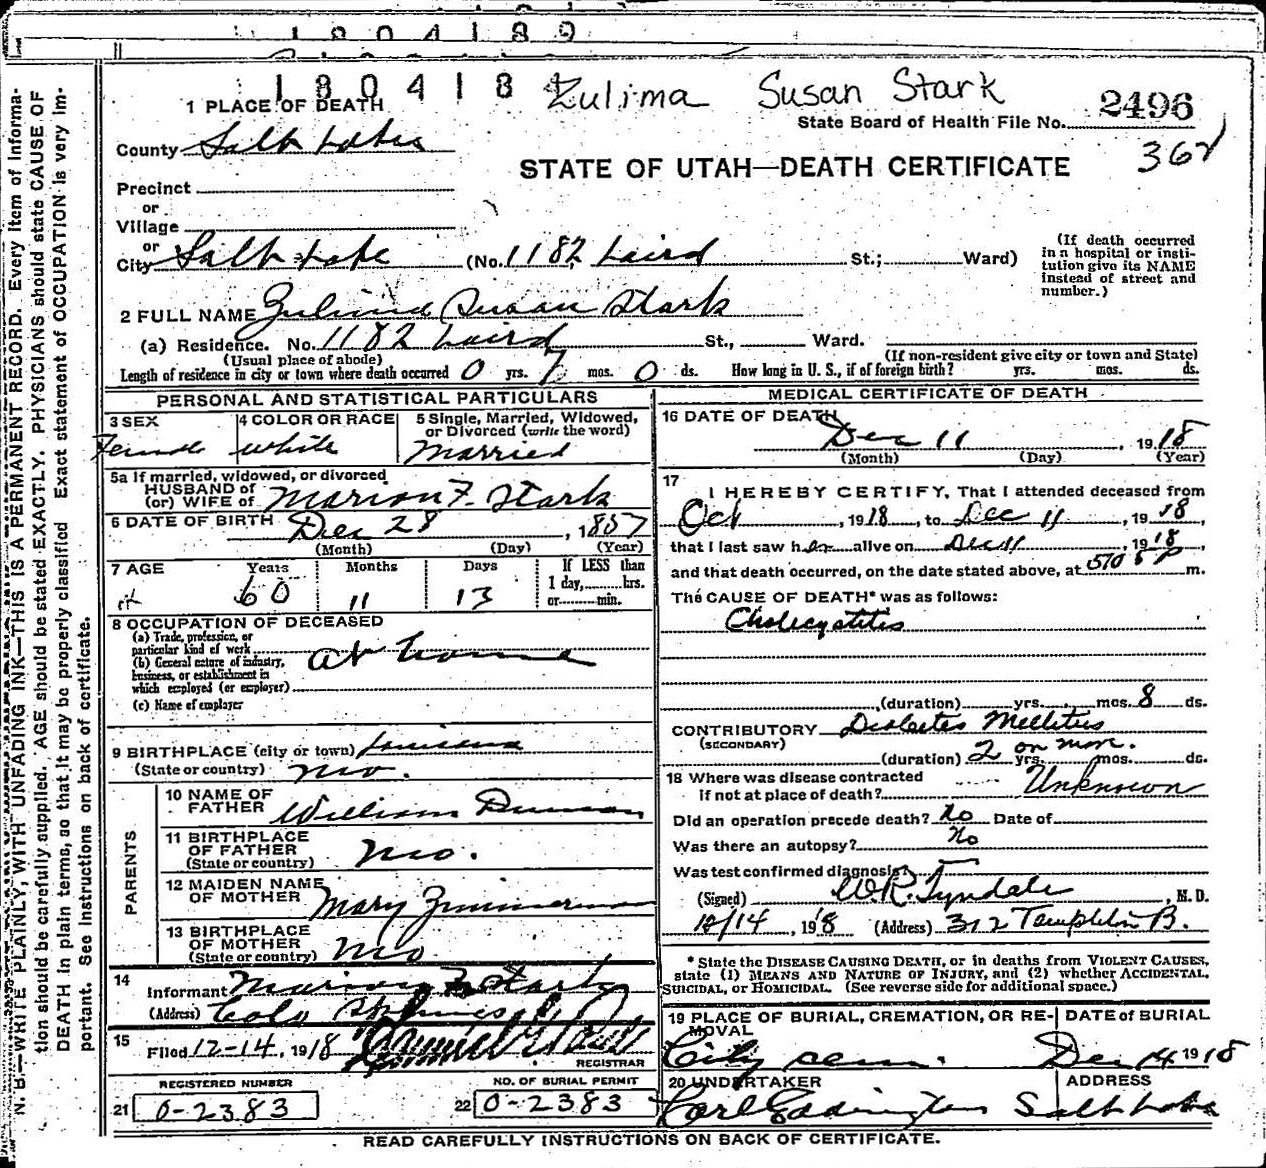 1804189
1804184 Zulima Susan Stark
1 PLACE OF DEATH
State Board of Health File No. 2496
County Salt Lake
STATE OF UTAH—DEATH CERTIFICATE
362
Precinct
or
Village
or
City Salt Lake (No. 1182 Laird St.; Ward)
(If death occurred in a hospital or institution give its NAME instead of street and number.)
2 FULL NAME Zulima Susan Stark
(a) Residence. No. 1182 Laird St., Ward.
(Usual place of abode) (If non-resident give city or town and State)
Length of residence in city or town where death occurred 0 yrs. 7 mos. 0 ds. How long in U. S., if of foreign birth? yrs. mos. ds.
PERSONAL AND STATISTICAL PARTICULARS
3 SEX Female
4 COLOR OR RACE White
5 Single, Married, Widowed, or Divorced (write the word) Married
5a If married, widowed, or divorced
HUSBAND of
(or) WIFE of Marion F. Stark
6 DATE OF BIRTH Dec 28, 1857
(Month) (Day) (Year)
7 AGE Years Months Days If LESS than
60 11 13 1 day, hrs.
or min.
8 OCCUPATION OF DECEASED
(a) Trade, profession, or
particular kind of work At home
(b) General nature of industry,
business, or establishment in
which employed (or employer)
(c) Name of employer
9 BIRTHPLACE (city or town) Louisiana
(State or country) Mo.
PARENTS
10 NAME OF
FATHER William Duncan
11 BIRTHPLACE
OF FATHER
(State or country) Mo.
12 MAIDEN NAME
OF MOTHER Mary Zimmerman
13 BIRTHPLACE
OF MOTHER
(State or country) Mo
14
Informant Marion F. Stark
(Address) Colo Springs
15 Filed 12-14, 1918
REGISTRAR
REGISTERED NUMBER NO. OF BURIAL PERMIT
21 0-2383 22 0-2383
MEDICAL CERTIFICATE OF DEATH
16 DATE OF DEATH
Dec 11, 1918
(Month) (Day) (Year)
17
I HEREBY CERTIFY, That I attended deceased from
Oct, 1918, to Dec 11, 1918,
that I last saw her alive on Dec 11, 1918,
and that death occurred, on the date stated above, at m.
The CAUSE OF DEATH* was as follows:
Cholecystitis
(duration) yrs. mos. 8 ds.
CONTRIBUTORY Diabetes Mellitus
(SECONDARY)
(duration) 2 or more. yrs. mos. ds.
18 Where was disease contracted
if not at place of death? Unknown
Did an operation precede death? No Date of
Was there an autopsy? No
Was test confirmed diagnosis?
(Signed) W.R. Tyndale, M. D.
12/14, 1918 (Address) 312 Templeton B.
* State the DISEASE CAUSING DEATH, or in deaths from VIOLENT CAUSES,
state (1) MEANS AND NATURE OF INJURY, and (2) whether ACCIDENTAL,
SUICIDAL, or HOMICIDAL. (See reverse side for additional space.)
19 PLACE OF BURIAL, CREMATION, OR RE- DATE of BURIAL
MOVAL
City cem. Dec 14 1918
20 UNDERTAKER ADDRESS
Salt Lake
READ CAREFULLY INSTRUCTIONS ON BACK OF CERTIFICATE.
N. B.—WRITE PLAINLY, WITH UNFADING INK—THIS IS A PERMANENT RECORD. Every item of informa-
tion should be carefully supplied. AGE should be stated EXACTLY. PHYSICIANS should state CAUSE OF
DEATH in plain terms, so that it may be properly classified. Exact statement of OCCUPATION is very im-
portant. See instructions on back of certificate.